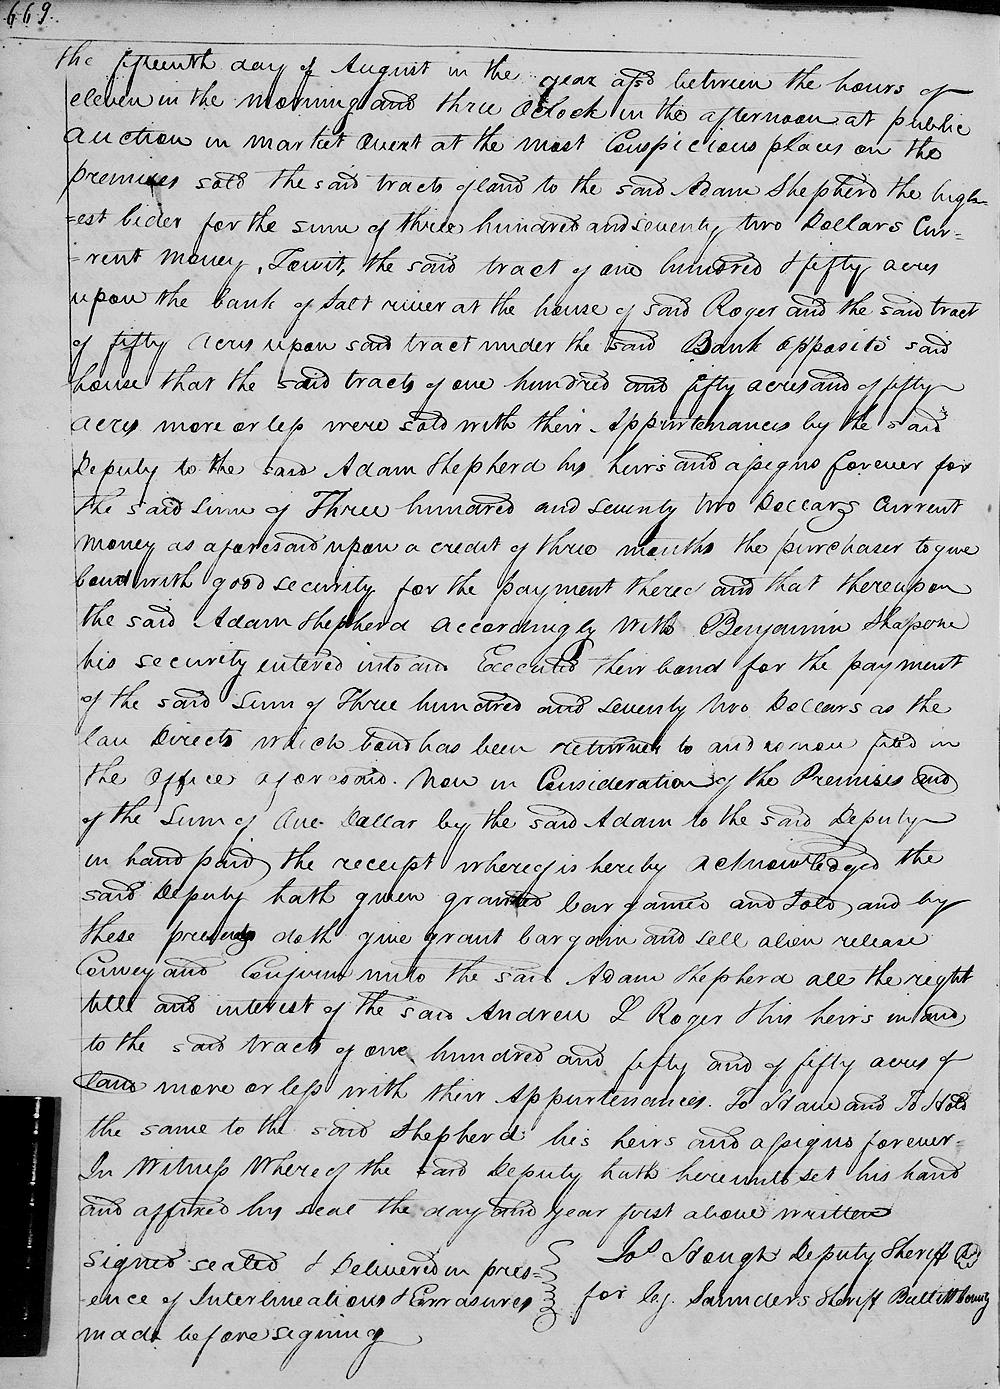 669.
the fifteenth day of August in the year afsd between the hours of
eleven in the morning and three oClock in the afternoon at public
Auction in market overt at the most Conspicious places on the
premises sold the said tracts of land to the said Adam Shepherd the high-
-est bider for the sum of three hundred and seventy two Dollars Cur-
-rent money, Towit, the said tract of one hundred & fifty acres
upon the bank of Salt river at the house of said Roger and the said tract
of fifty acres upon said tract under the said Bank opposite said
house that the said tracts of one hundred and fifty acres and of fifty
acres more or less were sold with their Appurtenances by the said
Deputy to the said Adam Shepherd his heirs and assigns forever for
the said Sum of Three hundred and seventy two Dollars Current
money as aforesaid upon a credit of three months the purchaser to give
bond with good security for the payment thereof and that thereupon
the said Adam Shepherd accordingly with Benjamin
his security entered into and Executed their bond for the payment
of the said Sum of Three hundred and seventy two Dollars as the
law Directs which bond has been returned to and is now filed in
the office aforesaid. Now in Consideration of the Premises and
of the Sum of One Dollar by the said Adam to the said Deputy
in hand paid the receipt whereof is hereby acknowledged the
said Deputy hath given granted bargained and Sold, and by
these presents doth give grant bargain and sell alien release
Convey and Confirm unto the said Adam Shepherd all the right
title and interest of the said Andrew L Roger & his heirs in and
to the said tracts of one hundred and fifty and of fifty acres of
land more or less with their Appurtenances. To Have and To Hold
the same to the said Shepherd his heirs and assigns forever-
In Witness Whereof the said Deputy hath hereunto set his hand
and affixed his seal the day and year first above written
signed sealed & Delivered in pres-
-ence of Interlineations & Errasures
made before signing
Jos Hough Deputy Sheriff
for Saunders Sheriff Bullitt County